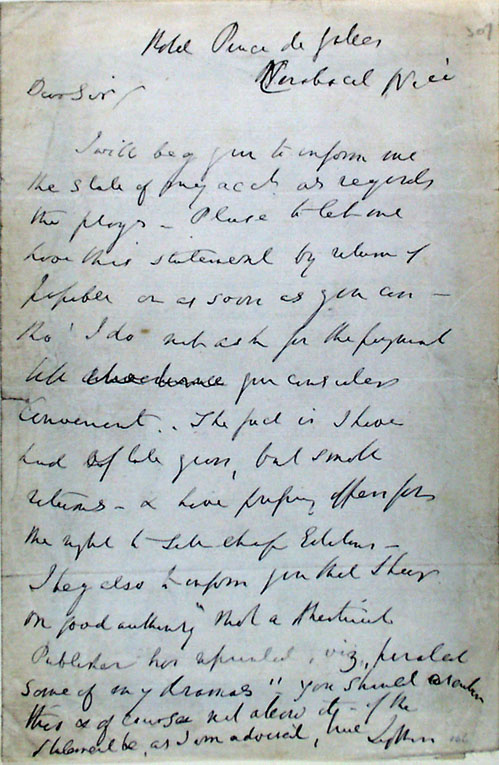 307
Hotel Prince de Galles
Nice
Dear Sir /
I will beg you to inform me
the state of my acct. as regards
the plays – Please to let me
have this statement by return if
possible or as soon as you can –
tho' I do not ask for the payment
till you consider
convenient.. The fact is I have
had of late years, but small
returns – & have pressing offers for
the right to sell cheap Editions –
I beg also to inform you that I hear
on good authority "that a theatrical
Publisher has reprinted, viz, pirated
some of my dramas" you should
this & of course not allow it – if the
statement be, as I am advised, true
Lytton